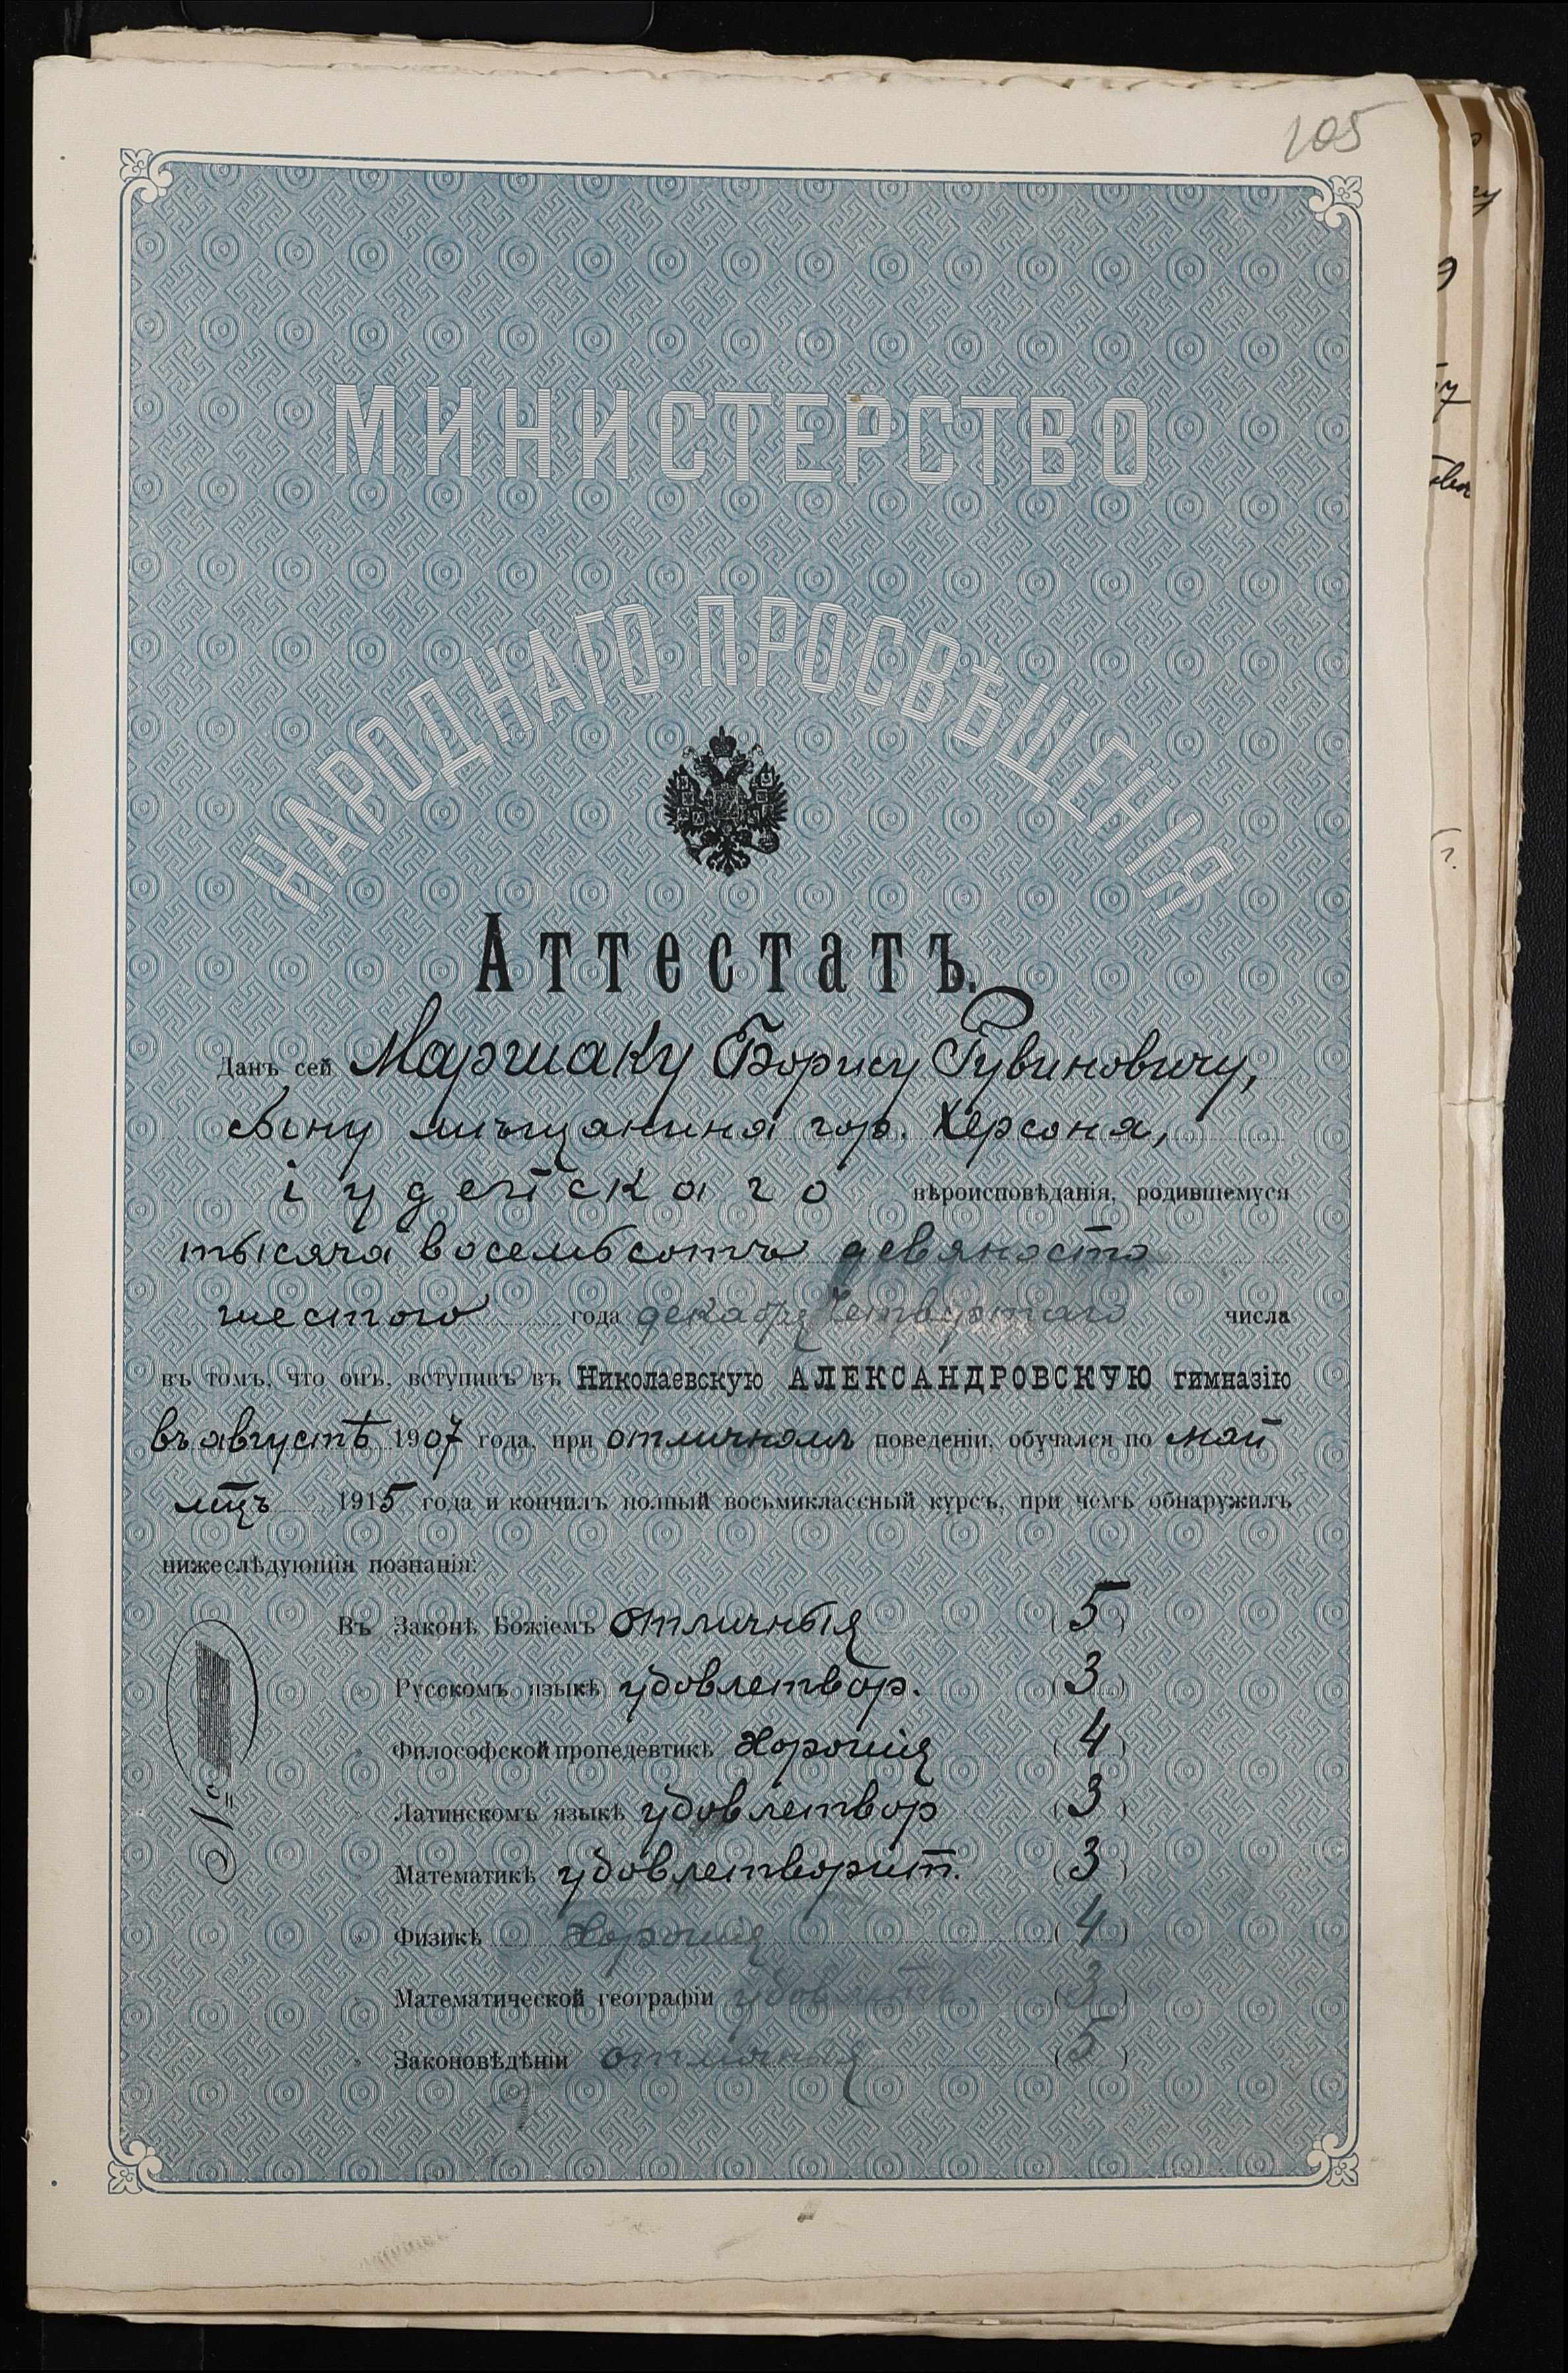 105
МИНИСТЕРСТВО
НАРОДНАГО ПРОСВѢЩЕНІЯ
Аттестатъ.
Данъ сей Маршаку Борису Рувиновичу,
сыну мѣщанина гор. Херсона,
іудейскаго вѣроисповѣданія, родившемуся
тысяча восемьсотъ девяносто
шестого года декабря четвертаго числа
въ томъ, что онъ, вступивъ въ Николаевскую АЛЕКСАНДРОВСКУЮ гимназію
въ августѣ 1907 года, при отличномъ поведеніи, обучался по май
мцъ 1915 года и кончилъ полный восьмиклассный курсъ, при чемъ обнаружилъ
нижеслѣдующія познанія:
Въ Законѣ Божіемъ отличныя (5)
" Русскомъ языкѣ удовлетвор. (3)
" Философской пропедевтикѣ хорошія (4)
" Латинскомъ языкѣ удовлетвор (3)
" Математикѣ удовлетворит. (3)
" Физикѣ хорошія (4)
" Математической географіи удовлетв. (3)
" Законовѣдѣніи отличныя (5)
№